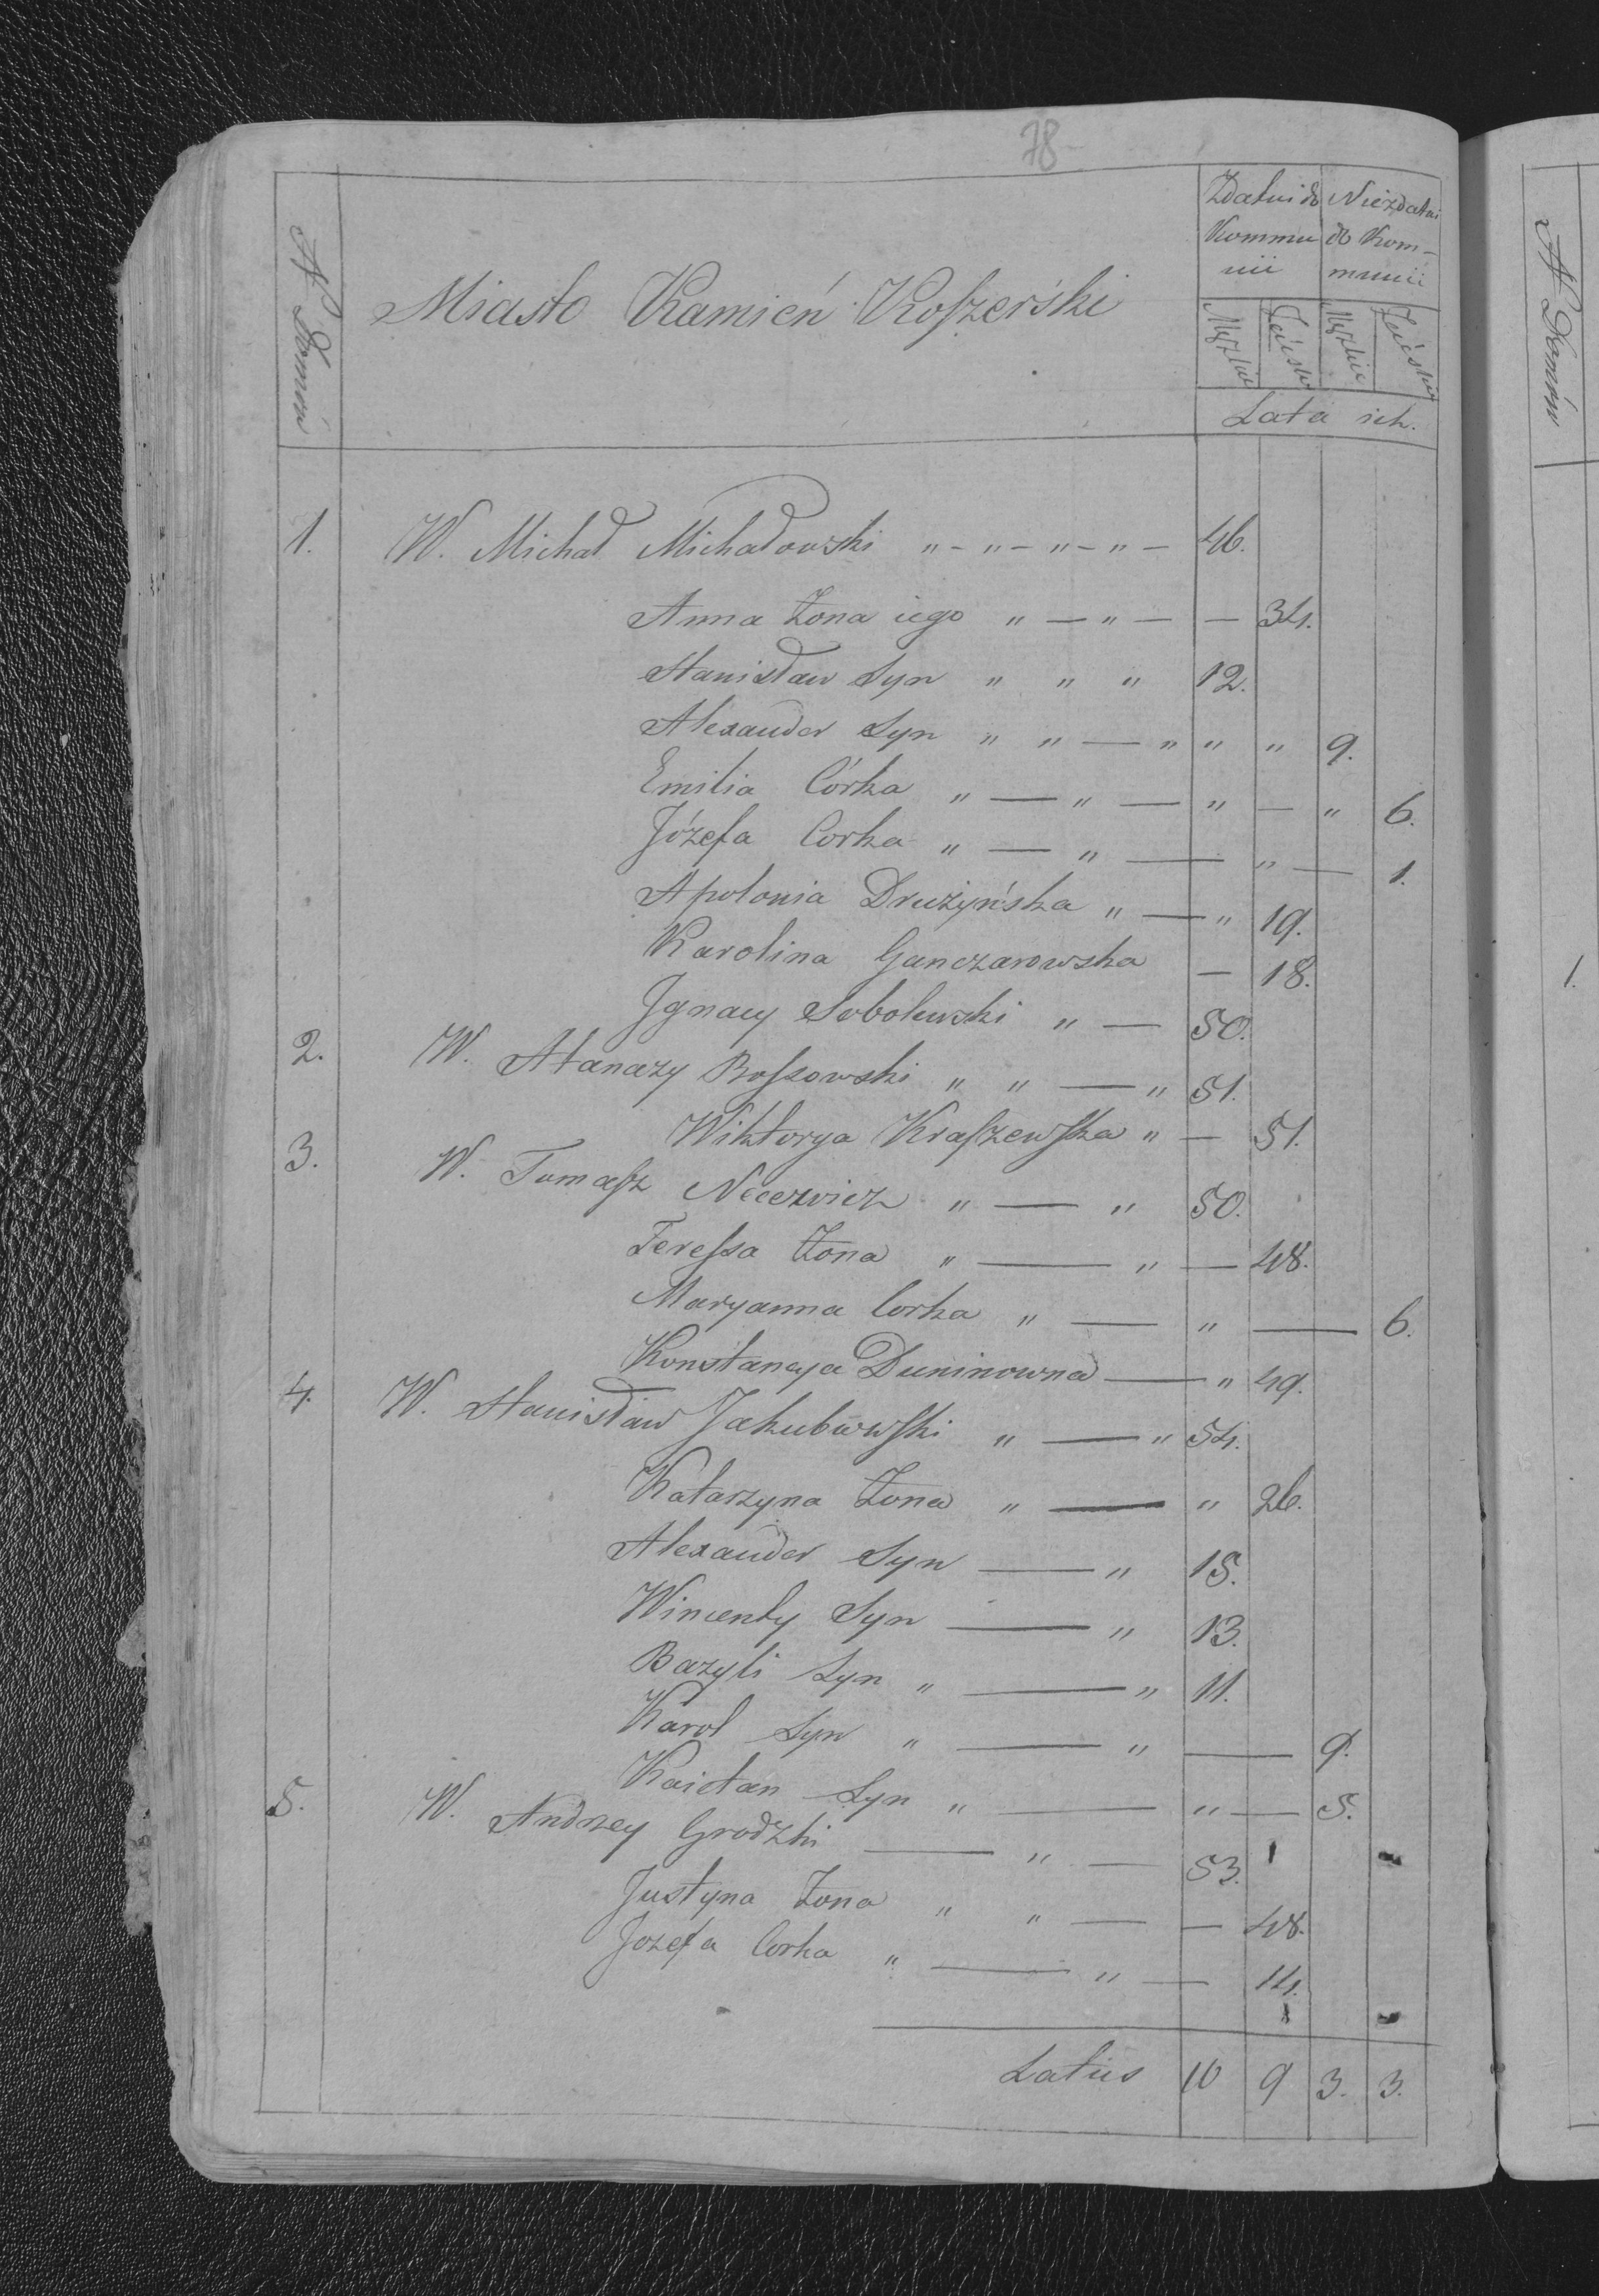 78
N Domów
Miasto Kamień Koszerski
Zdatni do Kommunii
Niezdatni do Kommunii
Męzkie
Żeńskie
Męzkie
Żeńskie
Lata ich.
1. W. Michał Michałowski " - " - " - " - 46.
Anna Żona iego " — " — — 34.
Stanisław Syn " " " 12.
Alexander Syn " " — " " " 9.
Emilia Córka " — " — " — " 6.
Józefa Corka " — " — " — 1.
Apolonia Drużyńska " — " 19.
Karolina Ganczarowska — 18.
Ignacy Sobolewski " — 50.
2. W. Atanazy Bossowski " " — " 51.
Wiktorya Kraszewska " — 51.
3. W. Tomasz Necewicz " — " 50.
Teressa Żona " — " — 48.
Maryanna Corka " — " — 6.
Konstancya Duninowna — " 49.
4. W. Stanisław Jakubowski " — " 54.
Katarzyna Żona " — " 26.
Alexander Syn — " 15.
Wincenty Syn — " 13.
Bazyli Syn " — " 11.
Karol Syn " — " — 9.
Kaietan Syn " — " — 5.
5. W. Andrzey Grodzki — " — 53.
Justyna Żona " " — — 48.
Jozefa Corka " — " — 14.
Latus 10 9 3. 3.
N Domów
1.